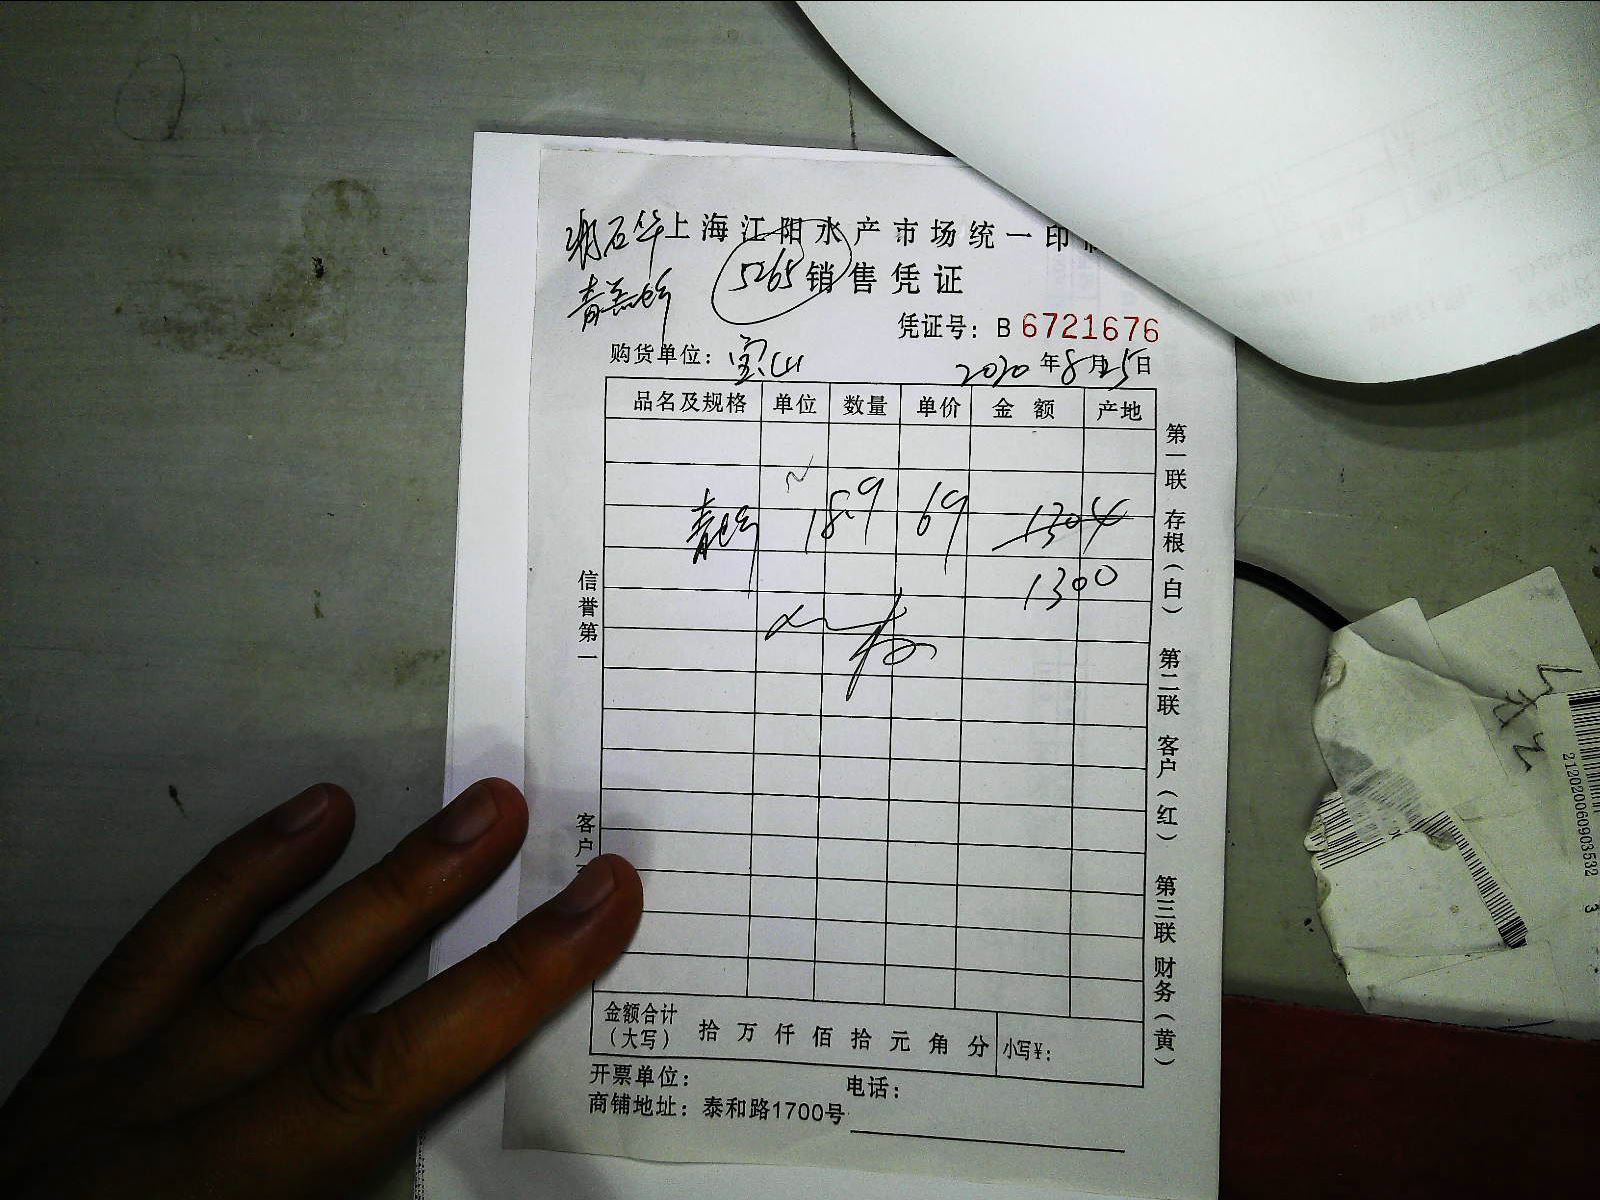 石华 上海江阳水产市场统一印
5265 销售凭证
凭证号：B 6721676
购货单位：宝山 2020年8月25日
品名及规格 单位 数量 单价 金额 产地
青 18.9 69 1304
1300
信誉第一
客户
第一联 存根（白） 第二联 客户（红） 第三联 财务（黄）
金额合计（大写） 拾 万 仟 佰 拾 元 角 分 小写¥：
开票单位： 电话：
商铺地址：泰和路1700号
2120200609035323